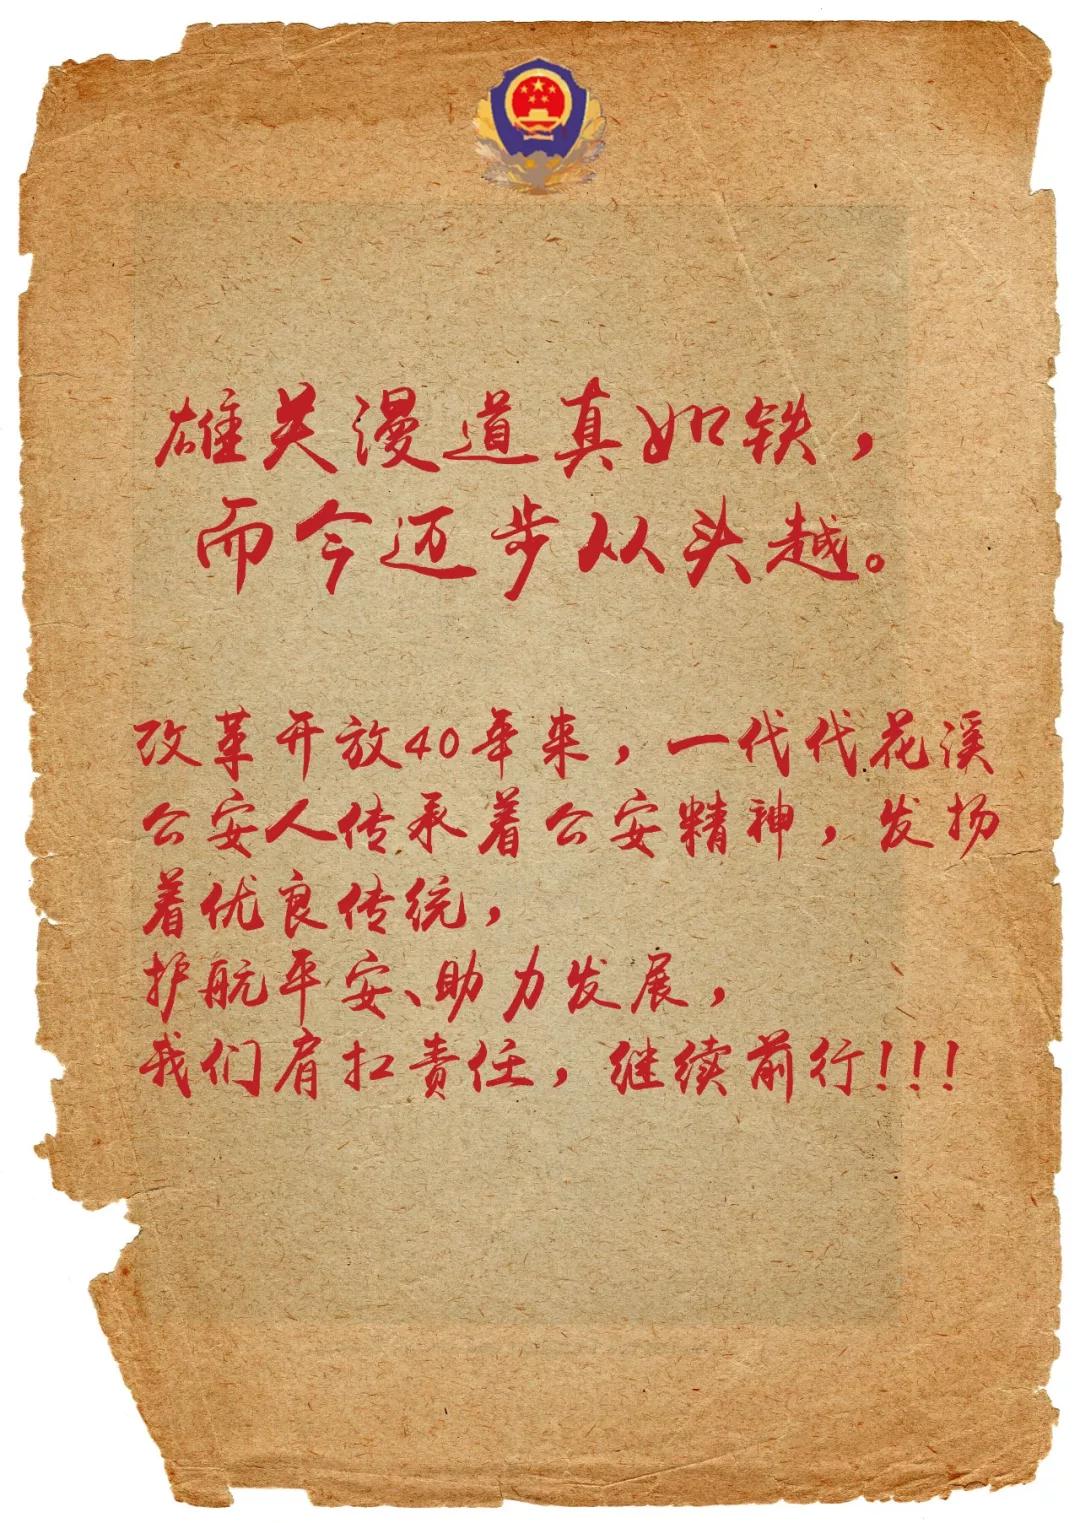 雄关漫道真如铁，
而今迈步从头越。
改革开放40年来，一代代花溪
公安人传承着公安精神，发扬
着优良传统，
护航平安、助力发展，
我们肩扛责任，继续前行!!!